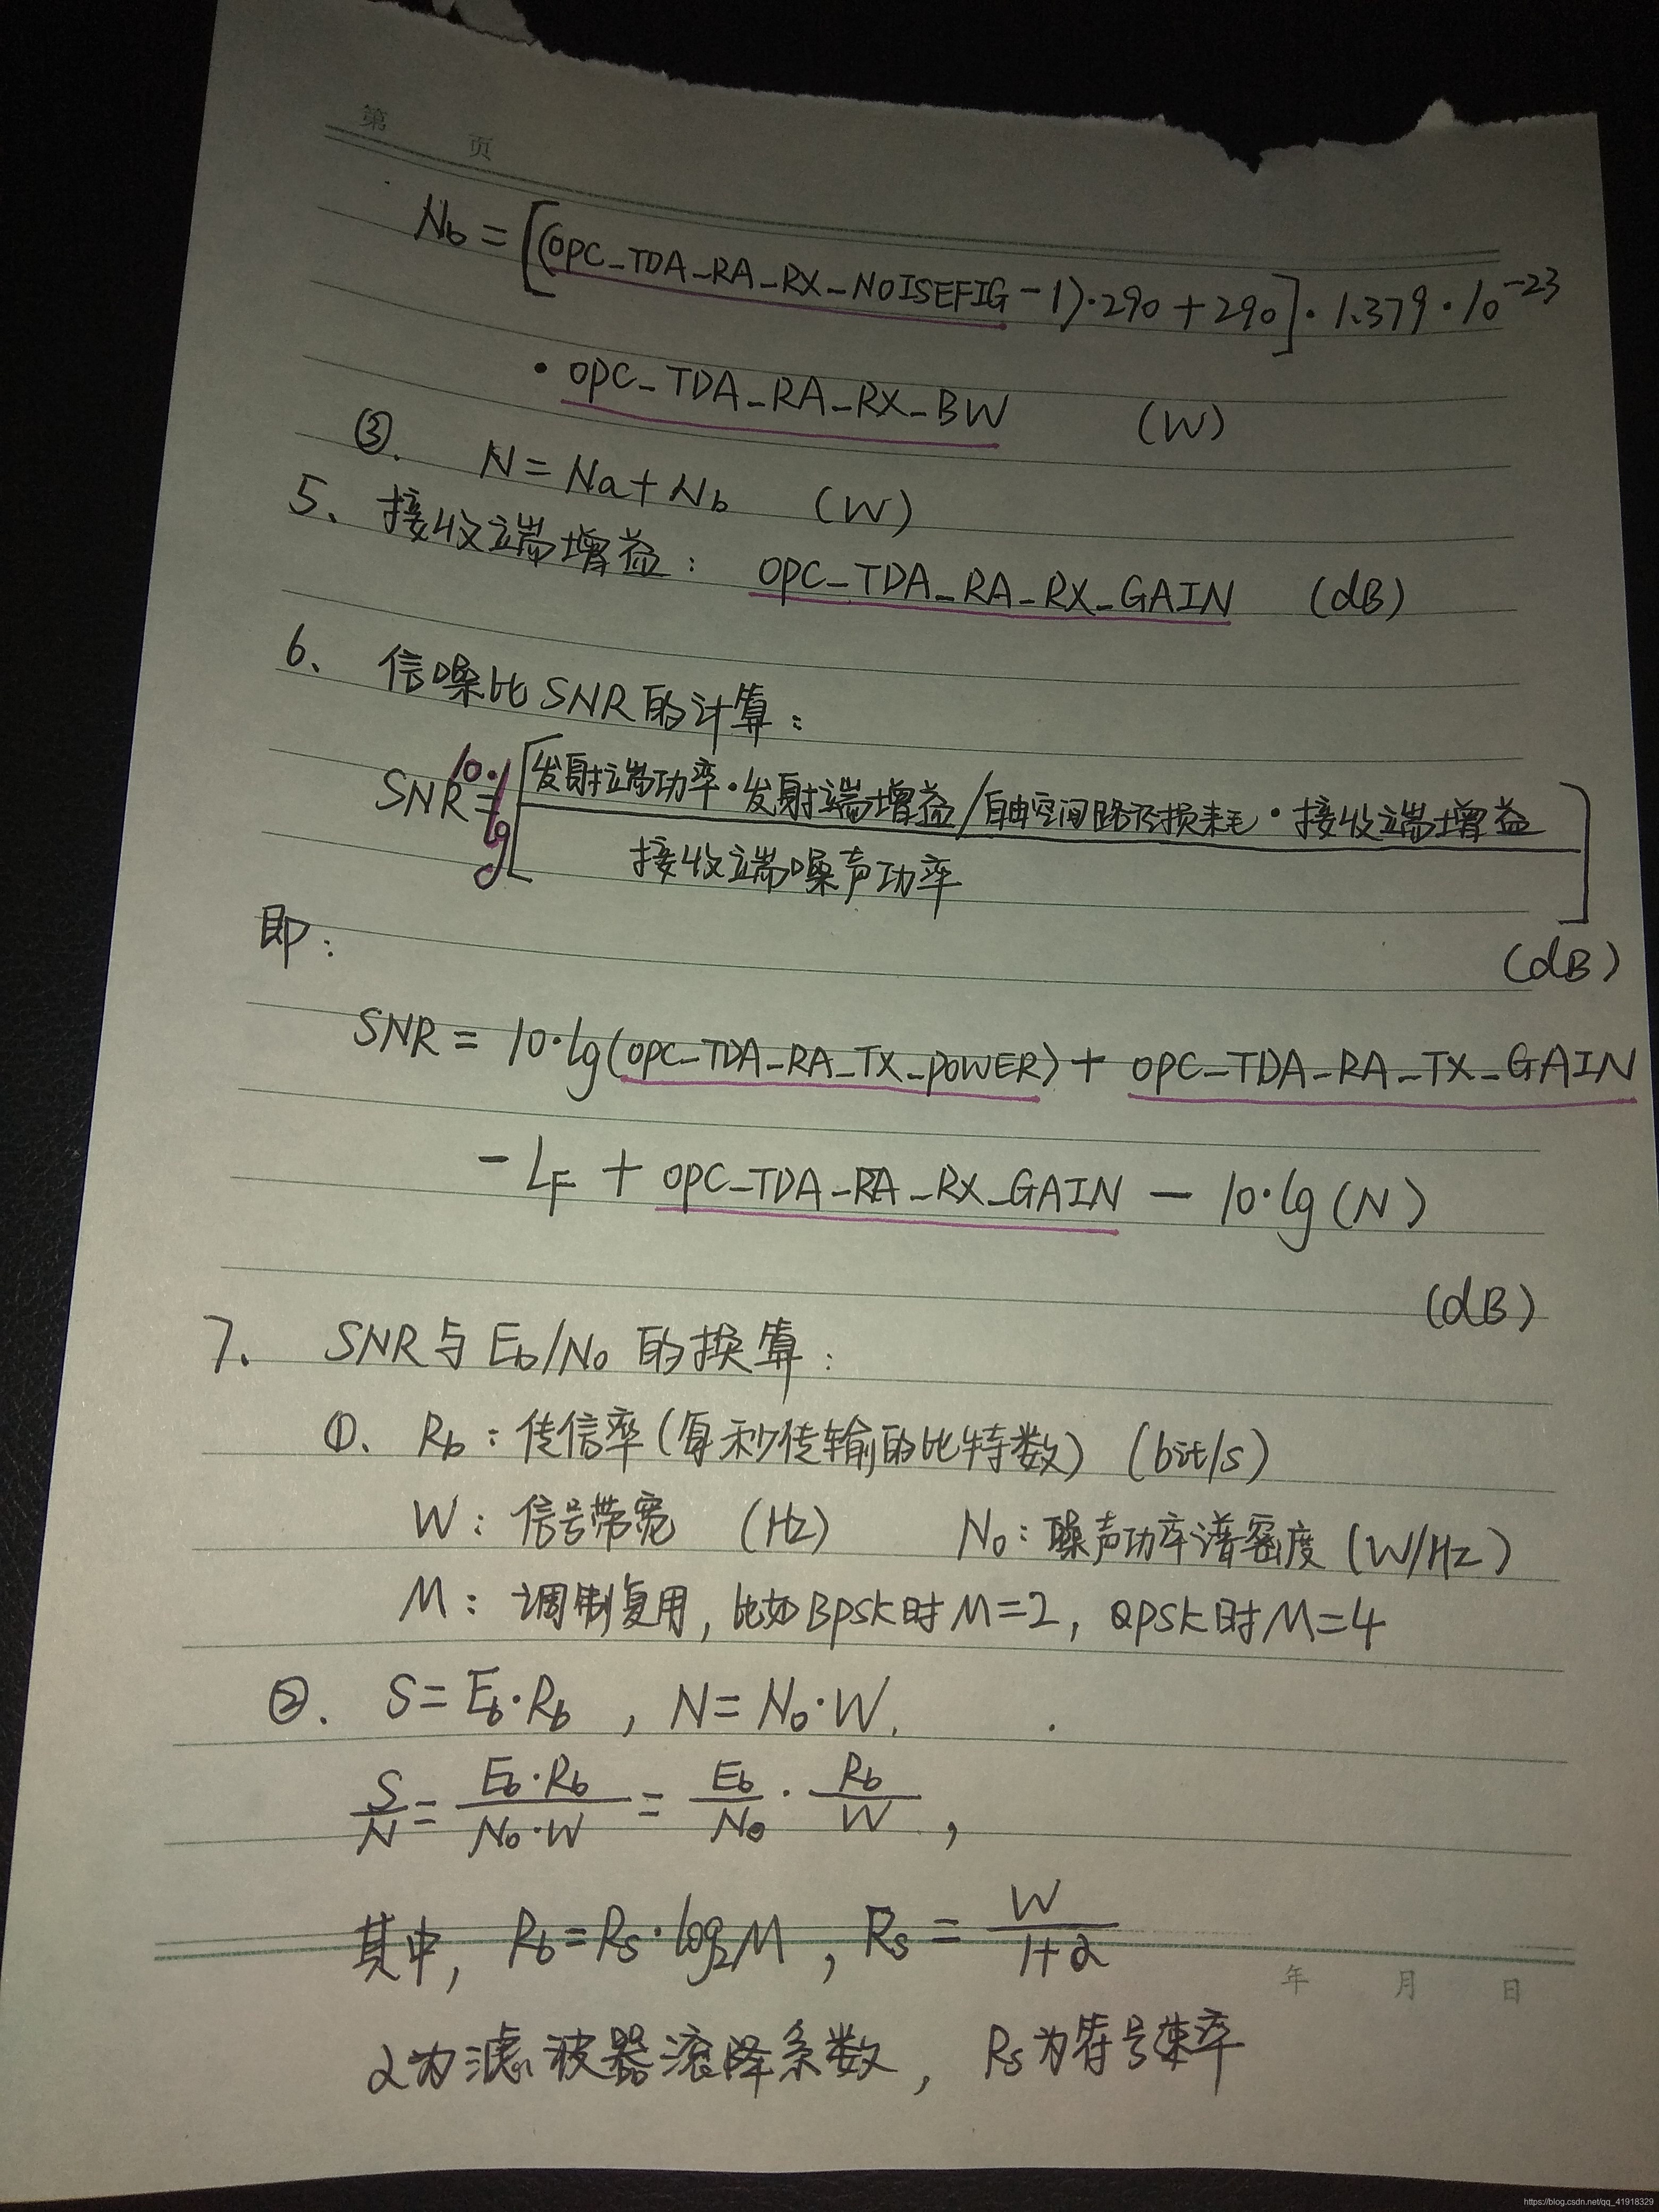 第 页
Nb = [(OPC_TDA_RA_RX_NOISEFIG - 1)·290 + 290]·1.379·10⁻²³
· OPC_TDA_RA_RX_BW (W)
③. N = Na + Nb (W)
5、接收端增益： OPC_TDA_RA_RX_GAIN (dB)
6、信噪比SNR的计算：
SNR = 10·lg[发射端功率·发射端增益/自由空间路径损耗·接收端增益
接收端噪声功率]
(dB)
即：
SNR = 10·lg(OPC_TDA_RA_TX_POWER) + OPC_TDA_RA_TX_GAIN
- LF + OPC_TDA_RA_RX_GAIN - 10·lg(N)
(dB)
7、SNR与Eb/N0的换算：
①、Rb：传信率(每秒传输的比特数) (bit/s)
W：信号带宽 (Hz) N0：噪声功率谱密度(W/Hz)
M：调制复用，比如BPSK时M=2，QPSK时M=4
②. S=Eb·Rb ，N=N0·W.
S/N = Eb·Rb/N0·W = Eb/N0 · Rb/W ，
其中，Rb=Rs·log2M ，Rs = W/1+α
年 月 日
α为滤波器滚降系数，Rs为符号速率
https://blog.csdn.net/qq_41918329